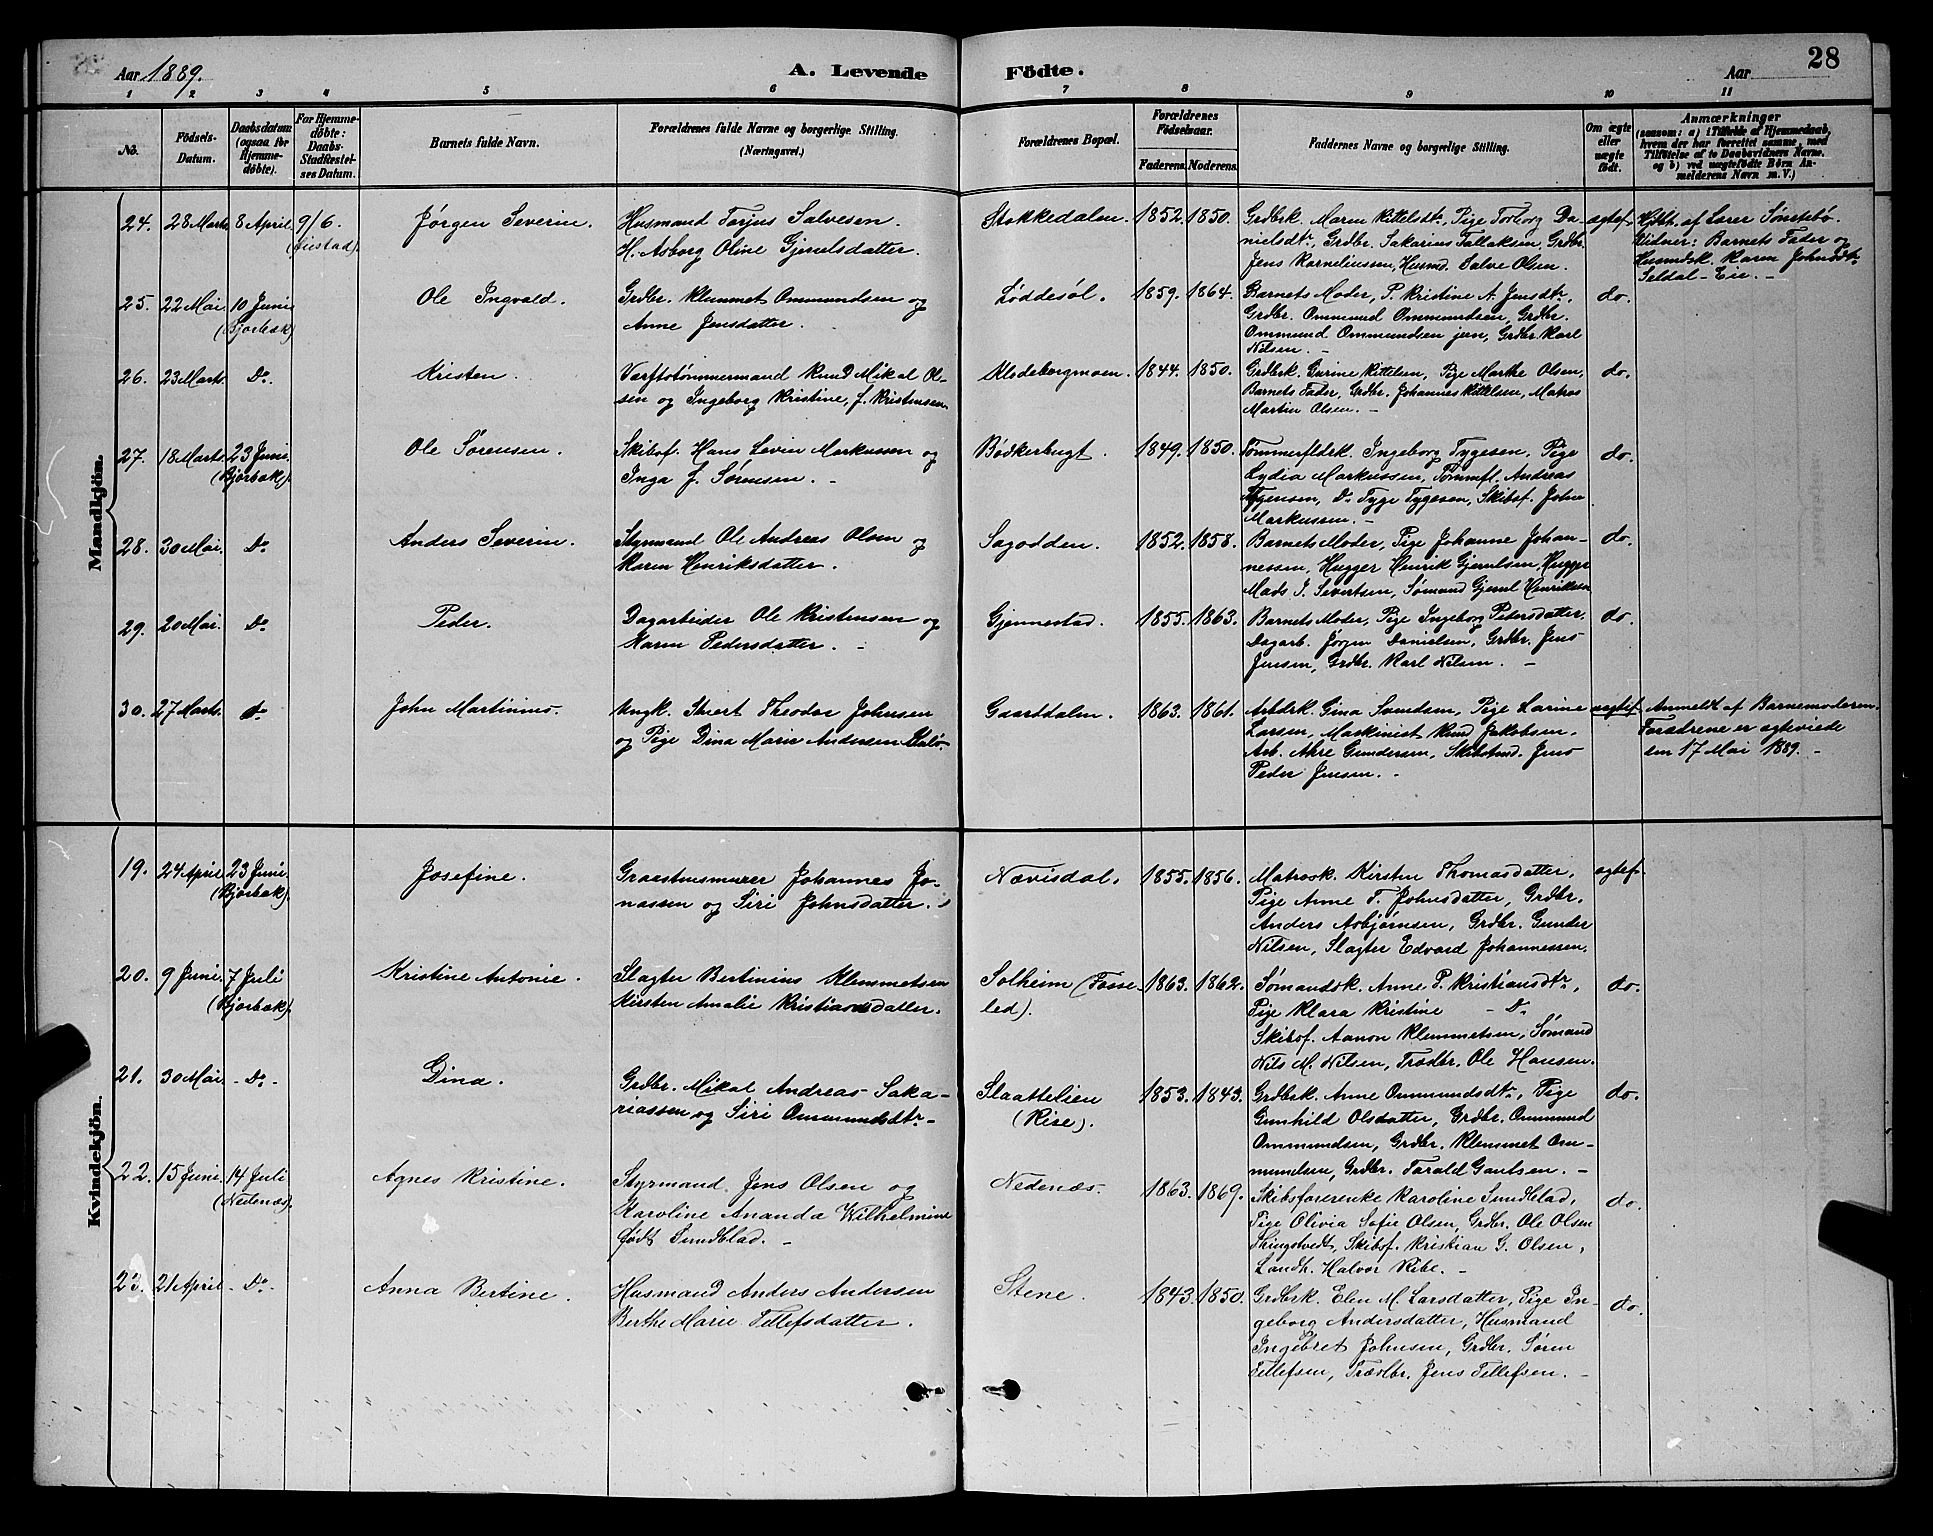 28
Aar 1889.
A. Levende Födte.
Aar
1 2 3 4 5 6 7 8 9 10 11
No.
Födsels-Datum.
Daabsdatum (ogsaa for Hjemme-döbte).
For Hjemme-döbte: Daabs-Stadfæstel-ses Datum.
Barnets fulde Navn.
Forældrenes fulde Navne og borgerlige Stilling. (Næringsvei.)
Forældrenes Bopæl.
Forældrenes Födselsaar.
Faderens. Moderens.
Faddernes Navne og borgerlige Stilling.
Om ægte eller uægte födt.
Anmærkninger
(saasom: a) i Tilfælde af Hjemmedaab, hvem der har forrettet samme, med Tilföielse af to Daabsvidners Navne. og b) ved uægtefödte Börn An-melderens Navn m. V.)
Mandkjön.
24. 28 Marts 8 April 9/6. Jørgen Severin. Husmand Torjus Salvesen. Stokkedalen. 1852. 1850. Grdbrk. Maren Kittelsdtr, Pige Torborg Da- ægtef. Hjdb. af Lærer Sønstebø.
(Øiestad). H. Asborg Oline Gjerulsdatter. nielsdtr, Grdbr. Sakarius Tallaksen, Grdbr. Vidner: Barnets Fader og
Jens Korneliussen, Husmd. Salve Olsen. Husmdsk. Karen Johnsdtr
Seldal-Eie. –
25. 22 Mai 10 Juni Ole Ingvald. Grdbr. Klemmet Ommundsen og Løddesøl. 1859. 1864. Barnets Moder, P. Kristine A. Jensdtr, do.
(Bjorbæk) Anne Jensdatter. Grdbr. Ommund Ommundsen, Grdbr.
Ommund Ommundsen jun, Grdbr. Karl
Nilsen. –
26. 23 Marts. Do. Kristen. Værftstømmermand Knud Mikal Ol- Klodeborgmoen. 1844. 1850. Grdbrk. Gurine Kittelsen, Pige Marthe Olsen, do.
sen og Ingeborg Kristine, f. Kristensen. Barnets Fader, Grdbr. Johannes Kittelsen, Matros
Martin Olsen. –
27. 18 Marts 23 Juni. Ole Sørensen. Skibsf. Hans Levin Markussen og Bødkerbugt. 1849. 1850. Tømmerfldek. Ingeborg Tygesen, Pige do.
(Bjorbæk). Inga f. Sørensen. – Lydia Markussen, Tømmfl. Andreas
Tygensen, Do Tyge Tygesen, Skibsf. John
Markussen. –
28. 30 Mai. Do Anders Severin. Styrmand Ole Andreas Olsen og Sagodden. 1852. 1858. Barnets Moder, Pige Johanne Johan- do.
Karen Henriksdatter. nessen, Hugger Henrik Gjerulsen, Hugger
Mads J. Severtsen, Sømand Gjerul Henriksen
29. 20 Mai. Do Peder. Dagarbeider Ole Kristensen og Gjennestad. 1855. 1863. Barnets Moder, Pige Ingeborg Pedersdatter, do.
Karen Pedersdatter. – Dagarb. Jørgen Danielsen, Grdbr. Jens
Jensen, Grdbr. Karl Nilsen. –
30. 27 Marts. do John Martinius. Ungk. Theodor Johnsen Gaarddalen. 1863. 1861. Arbdrk. Gina Svendsen, Pige Larine uægtef. Anmeldt af Barnemoderen.
og Pige Dina Marie Andersen Maskinist Knud Jakobsen. Forældrene er ægteviede
Larsen, Arb. Gundersen, Jens den 17 Mai 1889. –
Peder Jensen. –
Kvindekjön.
19. 24 April 23 Juni. Josefine. Graastensmurer Johannes Jo- Nævisdal. 1855. 1856. Matrosk. Kirsten Thomasdatter, ægtef.
(Bjorbæk). nassen og Siri Johnsdatter. Pige Anne T. Johnsdatter, Grdbr.
Anders Asbjørnsen, Grdbr. Gunder
Nilsen, Slagter Edvard Johannessen.
20. 9 Juni. 7 Juli Kristine Antonie. Slagter Bertinius Klemmetsen Solheim (Fosse- 1863. 1862. Sømandsk. Anne P. Kristiansdtr, do.
(Bjorbæk). Kirsten Amalie Kristiansdatter. led). Pige Klara Kristine – Do
Skibsf. Aanon Klemmetsen, Sømand
Nils M. Nilsen, Trædbr. Ole Hansen.
21. 30 Mai. – Do. – Dina. Grdbr. Mikal Andreas Saka- Slaattelien 1853. 1843. Grdbrk. Anne Ommundsdtr, Pige do.
riassen og Siri Ommundsdtr – (Rise). Gunhild Olsdatter, Grdbr. Ommund
Ommundsen, Grdbr. Klemmet Om-
mundsen, Grdbr. Tarald Gautsen. –
22. 15 Juni. 14 Juli Agnes Kristine. Styrmand Jens Olsen og Nedenæs. 1863. 1869. Skibsførerenke Karoline Sundblad, do.
(Nedenæs). Karoline Ananda Wilhelmine Pige Olivia Sofie Olsen, Grdbr. Ole Olsen
født Sundblad. – Skibsf. Kristian G. Olsen,
Landh. Halvor Ribe. –
23. 21 April – Do. – Anna Bertine. Husmand Anders Andersen Stene. 1843. 1850. Grdbrk. Elen M. Larsdatter, Pige In- do.
Berthe Marie Tellefsdatter. geborg Andersdatter, Husmand
Ingebret Johnsen, Grdbr. Søren
Tellefsen, Trædbr. Jens Tellefsen. –